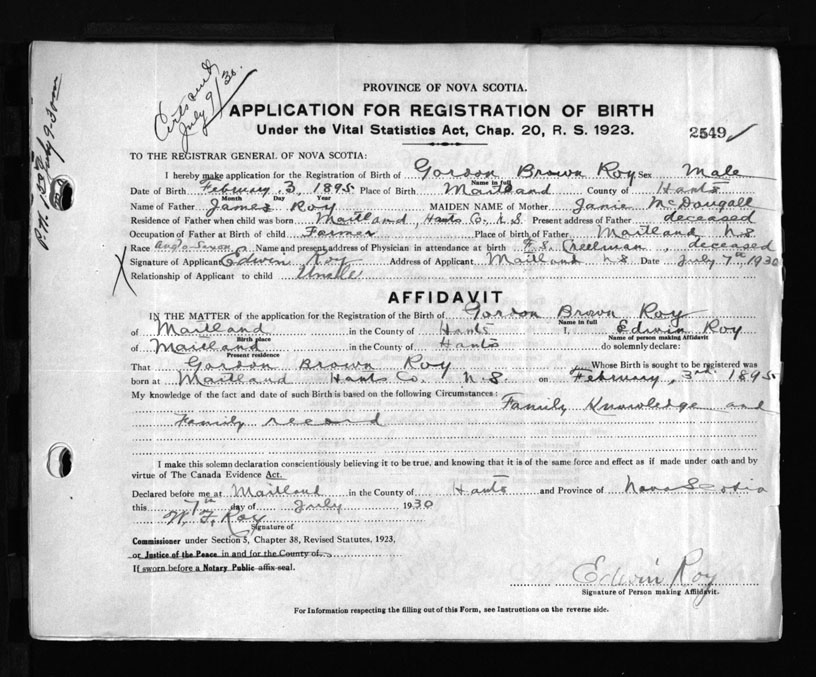 July 9/30.
PROVINCE OF NOVA SCOTIA.
APPLICATION FOR REGISTRATION OF BIRTH
Under the Vital Statistics Act, Chap. 20, R. S. 1923.
2549
TO THE REGISTRAR GENERAL OF NOVA SCOTIA:
I hereby make application for the Registration of Birth of Gordon Brown Roy Sex Male
Name in full
Date of Birth February 3, 1895 Place of Birth Maitland County of Hants
Month Day Year
Name of Father James Roy MAIDEN NAME of Mother Janie McDougall
Residence of Father when child was born Maitland, Hants Co. N.S. Present address of Father deceased
Occupation of Father at Birth of child Farmer Place of birth of Father Maitland N.S.
Race Anglo-Saxon Name and present address of Physician in attendance at birth F. S. Creelman, deceased
Signature of Applicant Edwin Roy Address of Applicant Maitland N.S. Date July 7th 1930
Relationship of Applicant to child Uncle
AFFIDAVIT
IN THE MATTER of the application for the Registration of the Birth of Gordon Brown Roy
Name in full
of Maitland in the County of Hants I, Edwin Roy
Birth place Name of person making Affidavit
of Maitland in the County of Hants do solemnly declare:
Present residence
That Gordon Brown Roy Whose Birth is sought to be registered was
born at Maitland Hants Co. N.S. on February, 3rd 1895
My knowledge of the fact and date of such Birth is based on the following Circumstances: Family Knowledge and
Family record
I make this solemn declaration conscientiously believing it to be true, and knowing that it is of the same force and effect as if made under oath and by
virtue of The Canada Evidence Act.
Declared before me at Maitland in the County of Hants and Province of Nova Scotia
this 7th day of July 1930
W. F. Roy
Signature of
Commissioner under Section 5, Chapter 38, Revised Statutes, 1923,
or Justice of the Peace in and for the County of
If sworn before a Notary Public affix seal.
Edwin Roy
Signature of Person making Affidavit.
For Information respecting the filling out of this Form, see Instructions on the reverse side.